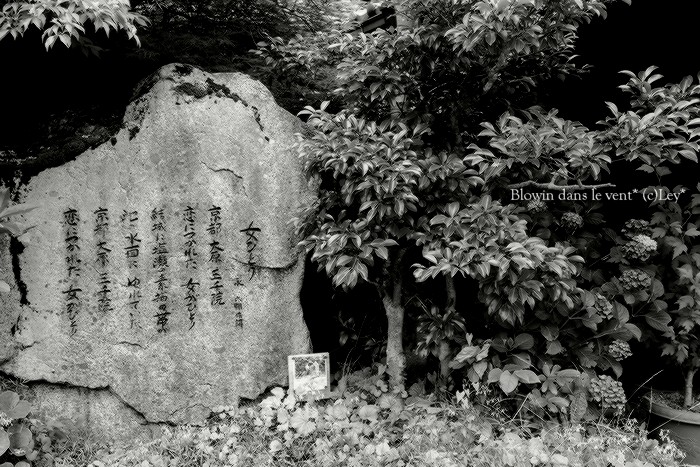 女ひとり
永 六輔
京都 大原 三千院
恋につかれた 女がひとり
結城に塩瀬の素描の帯が
池の水面に ゆれていた
京都 大原 三千院
恋につかれた 女がひとり
Blowin dans le vent* (c)Ley*